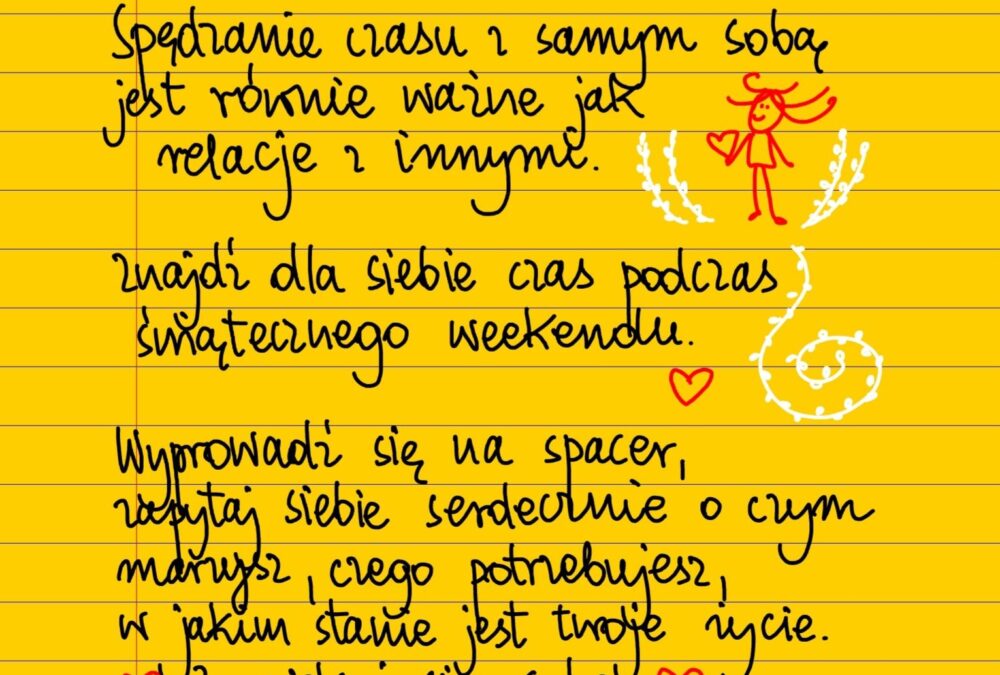 Spędzanie czasu z samym sobą
jest równie ważne jak
relacje z innymi.
znajdź dla siebie czas podczas
świątecznego weekendu.
Wyprowadź się na spacer,
zapytaj siebie serdecznie o czym
marzysz, czego potrzebujesz,
w jakim stanie jest twoje życie.